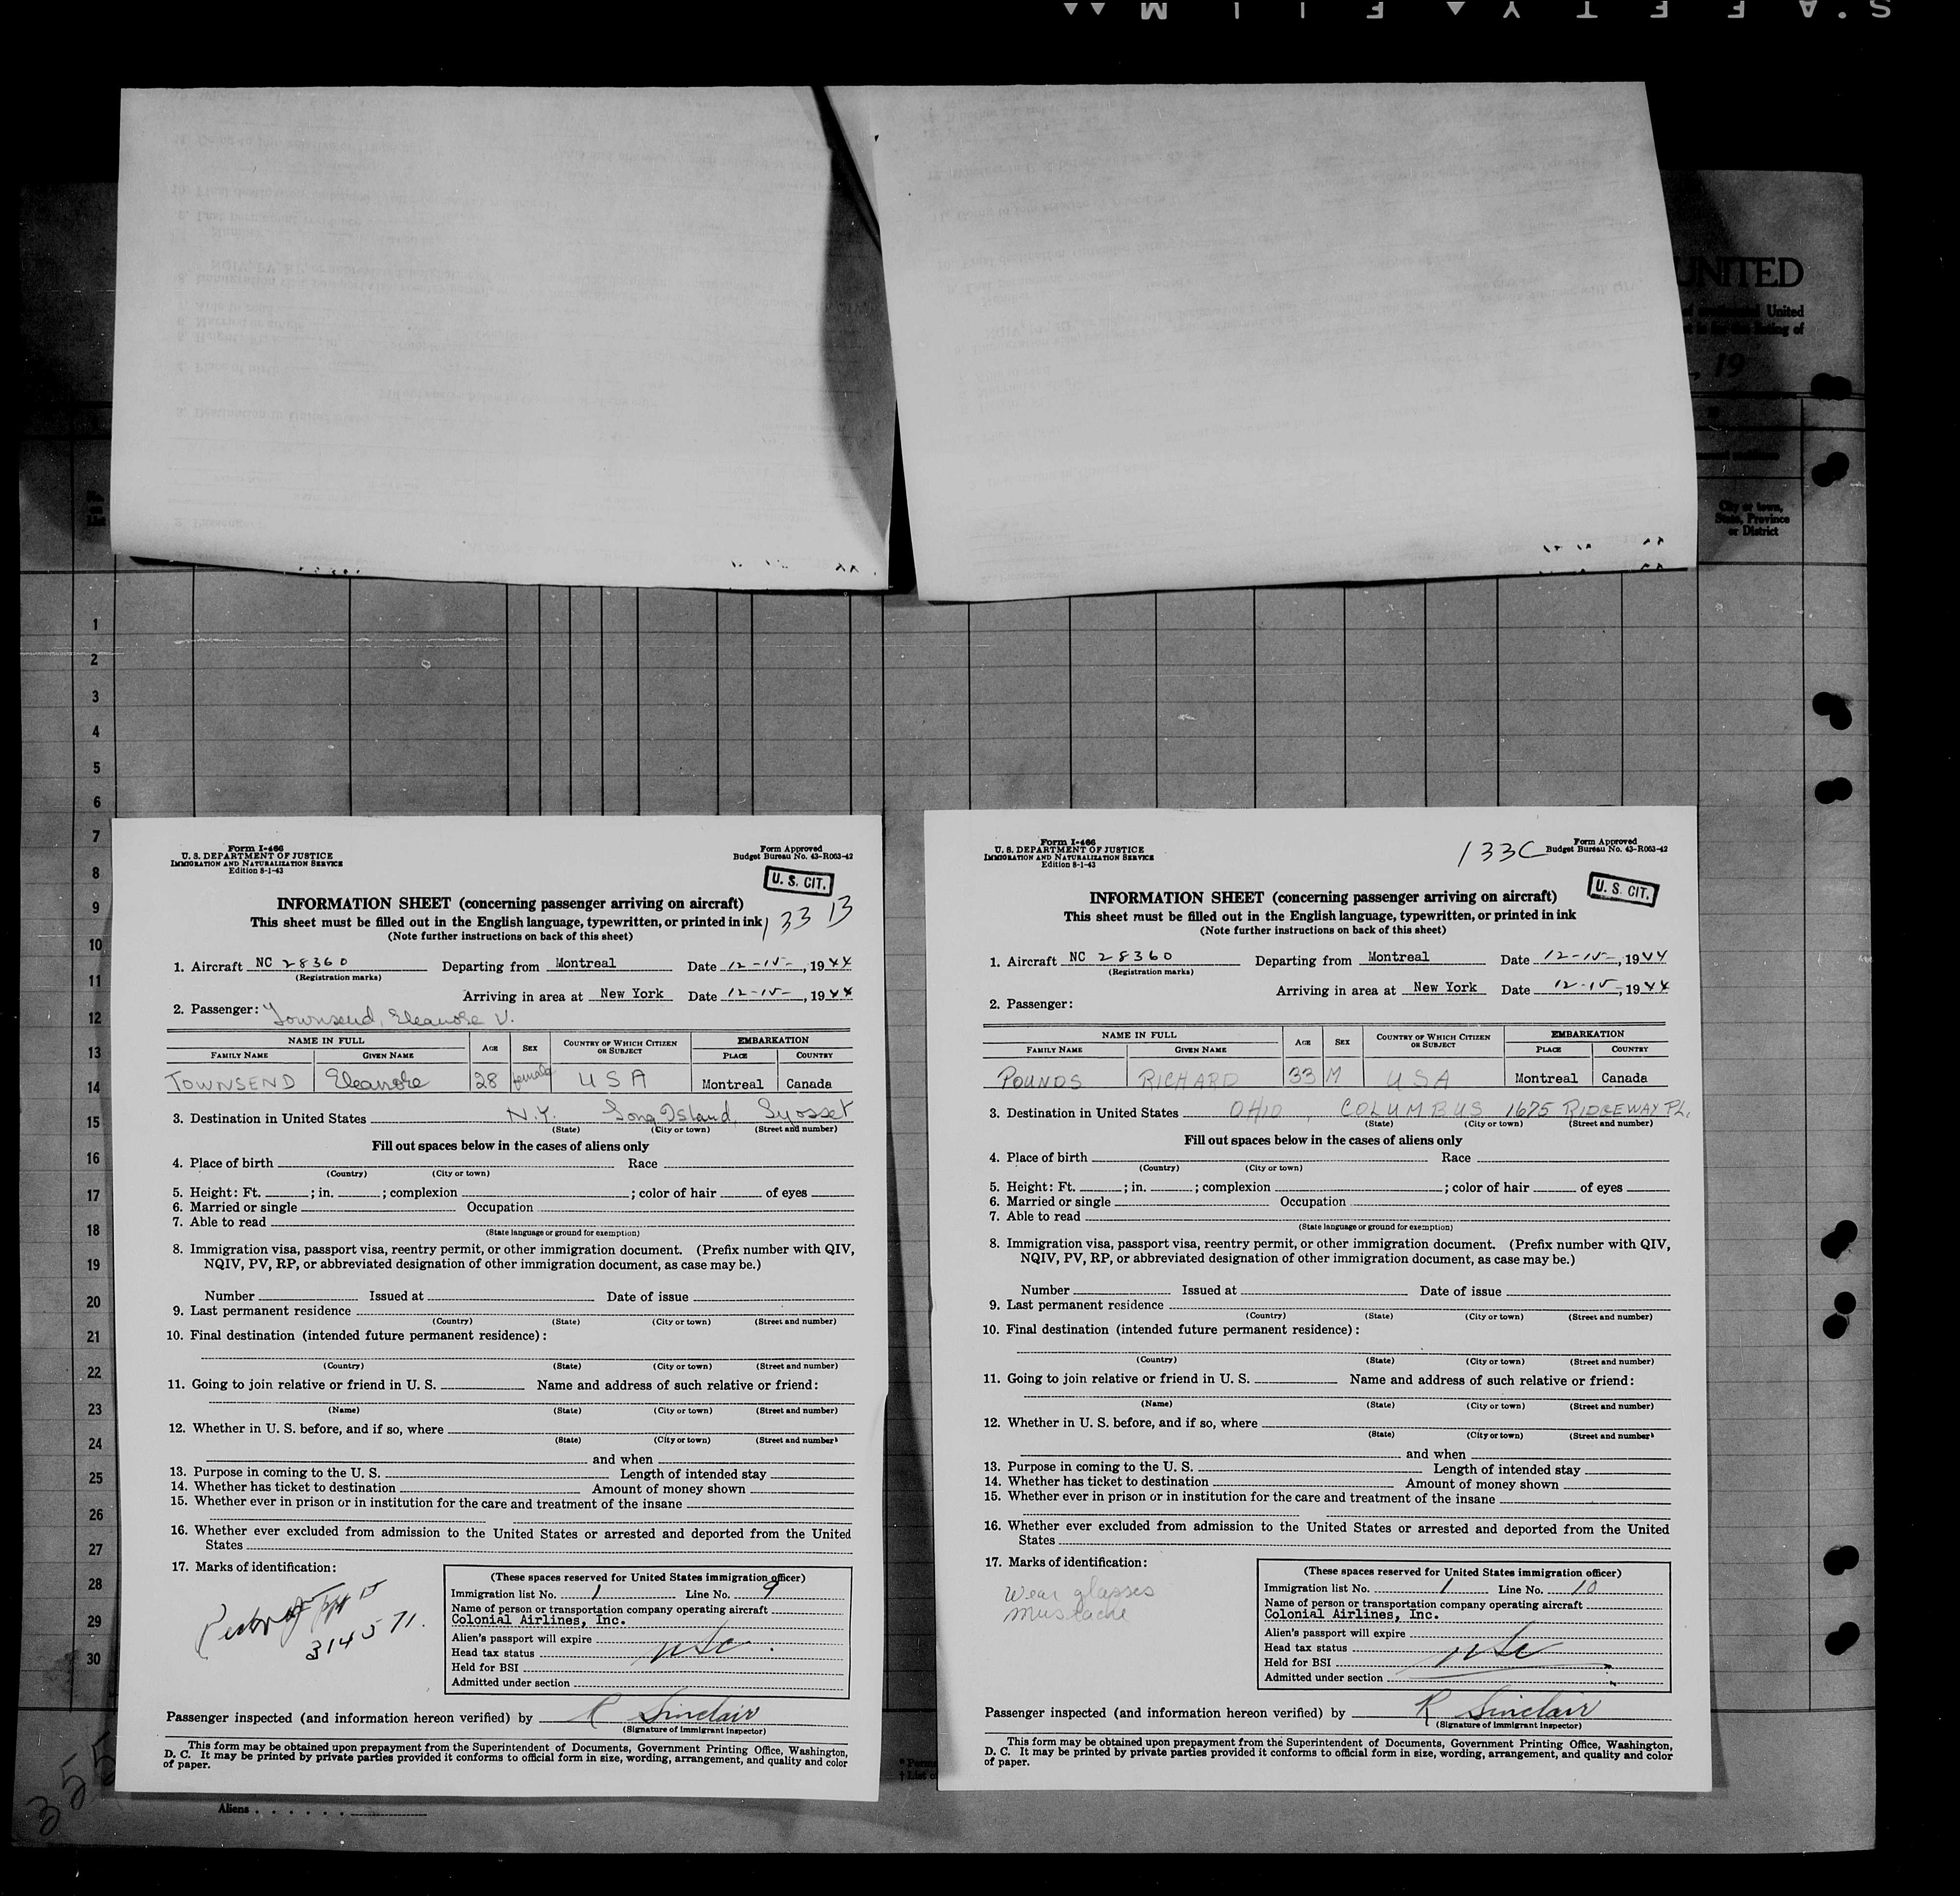 UNITED
United
, 19
City or town,
State, Province
or District
1
2
3
4
5
6
7
8
9
10
11
12
13
14
15
16
17
18
19
20
21
22
23
24
25
26
27
28
29
30
355
Aliens
Form I-466
U. S. DEPARTMENT OF JUSTICE
IMMIGRATION AND NATURALIZATION SERVICE
Edition 8-1-43
Form Approved
Budget Bureau No. 43-R063-42
U. S. CIT.
INFORMATION SHEET (concerning passenger arriving on aircraft)
This sheet must be filled out in the English language, typewritten, or printed in ink
(Note further instructions on back of this sheet)
1. Aircraft NC 28360 Departing from Montreal Date 12-15-, 1944
(Registration marks)
Arriving in area at New York Date 12-15-, 1944
2. Passenger: Townsend, Eleanore V.
NAME IN FULL AGE SEX COUNTRY OF WHICH CITIZEN OR SUBJECT EMBARKATION
FAMILY NAME GIVEN NAME PLACE COUNTRY
TOWNSEND Eleanore 28 female USA Montreal Canada
3. Destination in United States N.Y. Long Island, Syosset
(State) (City or town) (Street and number)
Fill out spaces below in the cases of aliens only
4. Place of birth Race
(Country) (City or town)
5. Height: Ft. ; in. ; complexion ; color of hair of eyes
6. Married or single Occupation
7. Able to read
(State language or ground for exemption)
8. Immigration visa, passport visa, reentry permit, or other immigration document. (Prefix number with QIV,
NQIV, PV, RP, or abbreviated designation of other immigration document, as case may be.)
Number Issued at Date of issue
9. Last permanent residence
(Country) (State) (City or town) (Street and number)
10. Final destination (intended future permanent residence):
(Country) (State) (City or town) (Street and number)
11. Going to join relative or friend in U. S. Name and address of such relative or friend:
(Name) (State) (City or town) (Street and number)
12. Whether in U. S. before, and if so, where
(State) (City or town) (Street and number)
and when
13. Purpose in coming to the U. S. Length of intended stay
14. Whether has ticket to destination Amount of money shown
15. Whether ever in prison or in institution for the care and treatment of the insane
16. Whether ever excluded from admission to the United States or arrested and deported from the United
States
17. Marks of identification:
314571.
(These spaces reserved for United States immigration officer)
Immigration list No. 1 Line No. 9
Name of person or transportation company operating aircraft
Colonial Airlines, Inc.
Alien's passport will expire
Head tax status USC
Held for BSI
Admitted under section
Passenger inspected (and information hereon verified) by R Sinclair
(Signature of immigrant inspector)
This form may be obtained upon prepayment from the Superintendent of Documents, Government Printing Office, Washington,
D. C. It may be printed by private parties provided it conforms to official form in size, wording, arrangement, and quality and color
of paper.
Form I-466
U. S. DEPARTMENT OF JUSTICE
IMMIGRATION AND NATURALIZATION SERVICE
Edition 8-1-43
133C
Form Approved
Budget Bureau No. 43-R063-42
U. S. CIT.
INFORMATION SHEET (concerning passenger arriving on aircraft)
This sheet must be filled out in the English language, typewritten, or printed in ink
(Note further instructions on back of this sheet)
1. Aircraft NC 28360 Departing from Montreal Date 12-15-, 1944
(Registration marks)
Arriving in area at New York Date 12-15-, 1944
2. Passenger:
NAME IN FULL AGE SEX COUNTRY OF WHICH CITIZEN OR SUBJECT EMBARKATION
FAMILY NAME GIVEN NAME PLACE COUNTRY
POUNDS RICHARD 33 M USA Montreal Canada
3. Destination in United States OHIO, COLUMBUS 1675 RIDGEWAY PL.
(State) (City or town) (Street and number)
Fill out spaces below in the cases of aliens only
4. Place of birth Race
(Country) (City or town)
5. Height: Ft. ; in. ; complexion ; color of hair of eyes
6. Married or single Occupation
7. Able to read
(State language or ground for exemption)
8. Immigration visa, passport visa, reentry permit, or other immigration document. (Prefix number with QIV,
NQIV, PV, RP, or abbreviated designation of other immigration document, as case may be.)
Number Issued at Date of issue
9. Last permanent residence
(Country) (State) (City or town) (Street and number)
10. Final destination (intended future permanent residence):
(Country) (State) (City or town) (Street and number)
11. Going to join relative or friend in U. S. Name and address of such relative or friend:
(Name) (State) (City or town) (Street and number)
12. Whether in U. S. before, and if so, where
(State) (City or town) (Street and number)
and when
13. Purpose in coming to the U. S. Length of intended stay
14. Whether has ticket to destination Amount of money shown
15. Whether ever in prison or in institution for the care and treatment of the insane
16. Whether ever excluded from admission to the United States or arrested and deported from the United
States
17. Marks of identification:
Wear glasses
mustache
(These spaces reserved for United States immigration officer)
Immigration list No. 1 Line No. 10
Name of person or transportation company operating aircraft
Colonial Airlines, Inc.
Alien's passport will expire
Head tax status USC
Held for BSI
Admitted under section
Passenger inspected (and information hereon verified) by R Sinclair
(Signature of immigrant inspector)
This form may be obtained upon prepayment from the Superintendent of Documents, Government Printing Office, Washington,
D. C. It may be printed by private parties provided it conforms to official form in size, wording, arrangement, and quality and color
of paper.